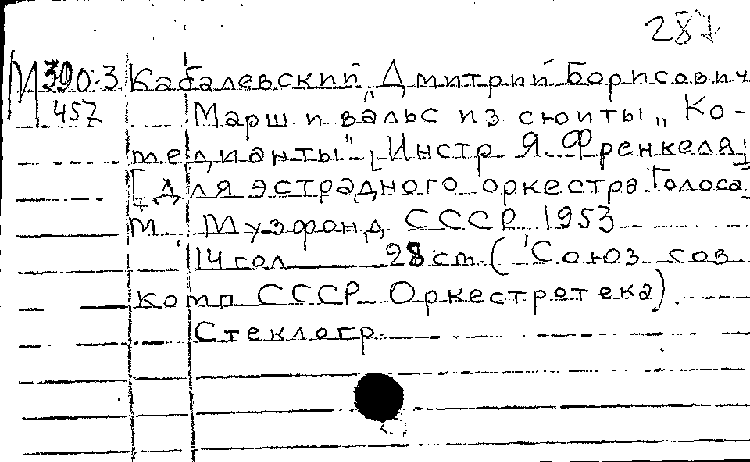 287
М 390-3 Кабалевский, Дмитрий Борисович
457 Марш и вальс из сюиты „Ко-
медианты" [Инстр Я. Френкеля]
[Для эстрадного оркестра. Голоса
М. Музфонд СССР 1953
14 гол 28 см (Союз сов
комп СССР Оркестротека)
Стеклогр.